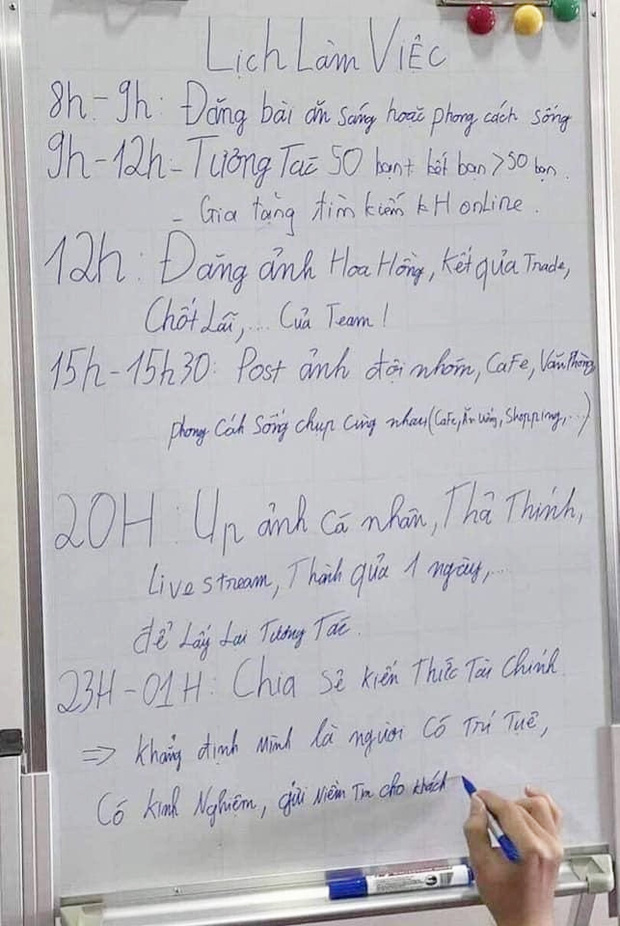 Lịch Làm Việc
8h-9h: Đăng bài ăn sáng hoặc phong cách sống
9h-12h - Tương Tác 50 bạn + kết bạn > 50 bạn.
- Gia tăng tìm kiếm KH online.
12h: Đăng ảnh Hoa Hồng, Kết quả Trade,
Chốt Lãi,... Của Team!
15h-15h30: Post ảnh đội nhóm, CaFe, Văn Phòng
phong Cách Sống chụp Cùng nhau (CaFe, Ăn uống, Shopping,...)
20H: Up ảnh cá nhân, Thả Thính,
Live stream, Thành quả 1 ngày,...
để Lấy Lại Tương Tác.
23H-01H: Chia Sẻ kiến Thức Tài Chính.
=> Khẳng định Mình là người Có Trí Tuệ,
Có Kinh Nghiệm, gửi Niềm Tin cho khách